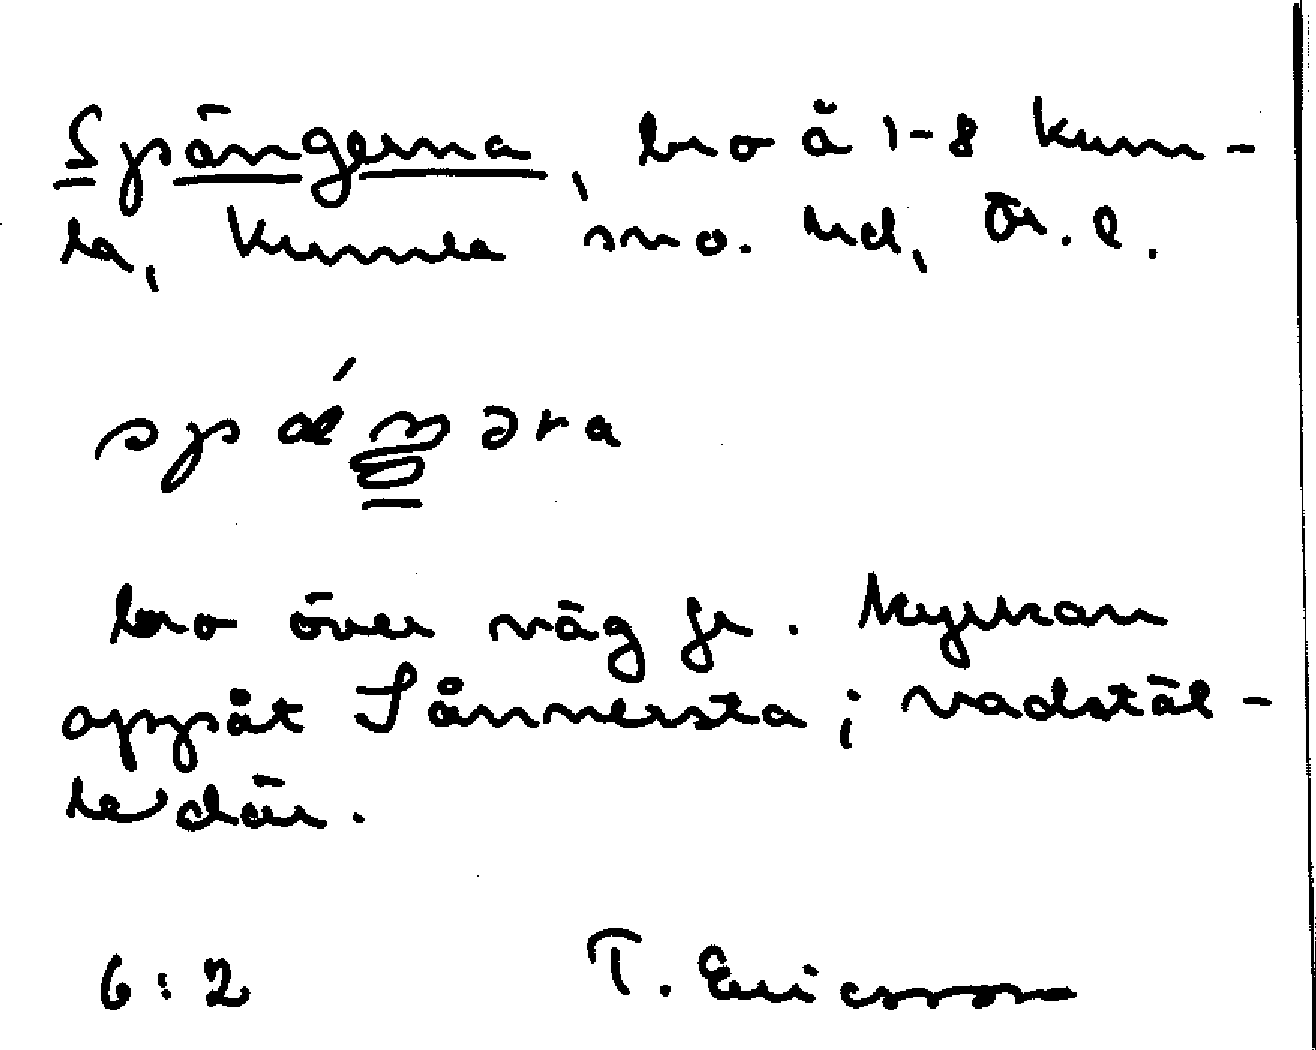 Spängerna, bro å 1-8 Kum-
la, Kumla sn o. hd, Ör. l.
bro över väg fr. Kyrkan
uppåt Sånnersta; vadstäl-
le där.
6:2 T. Ericsson